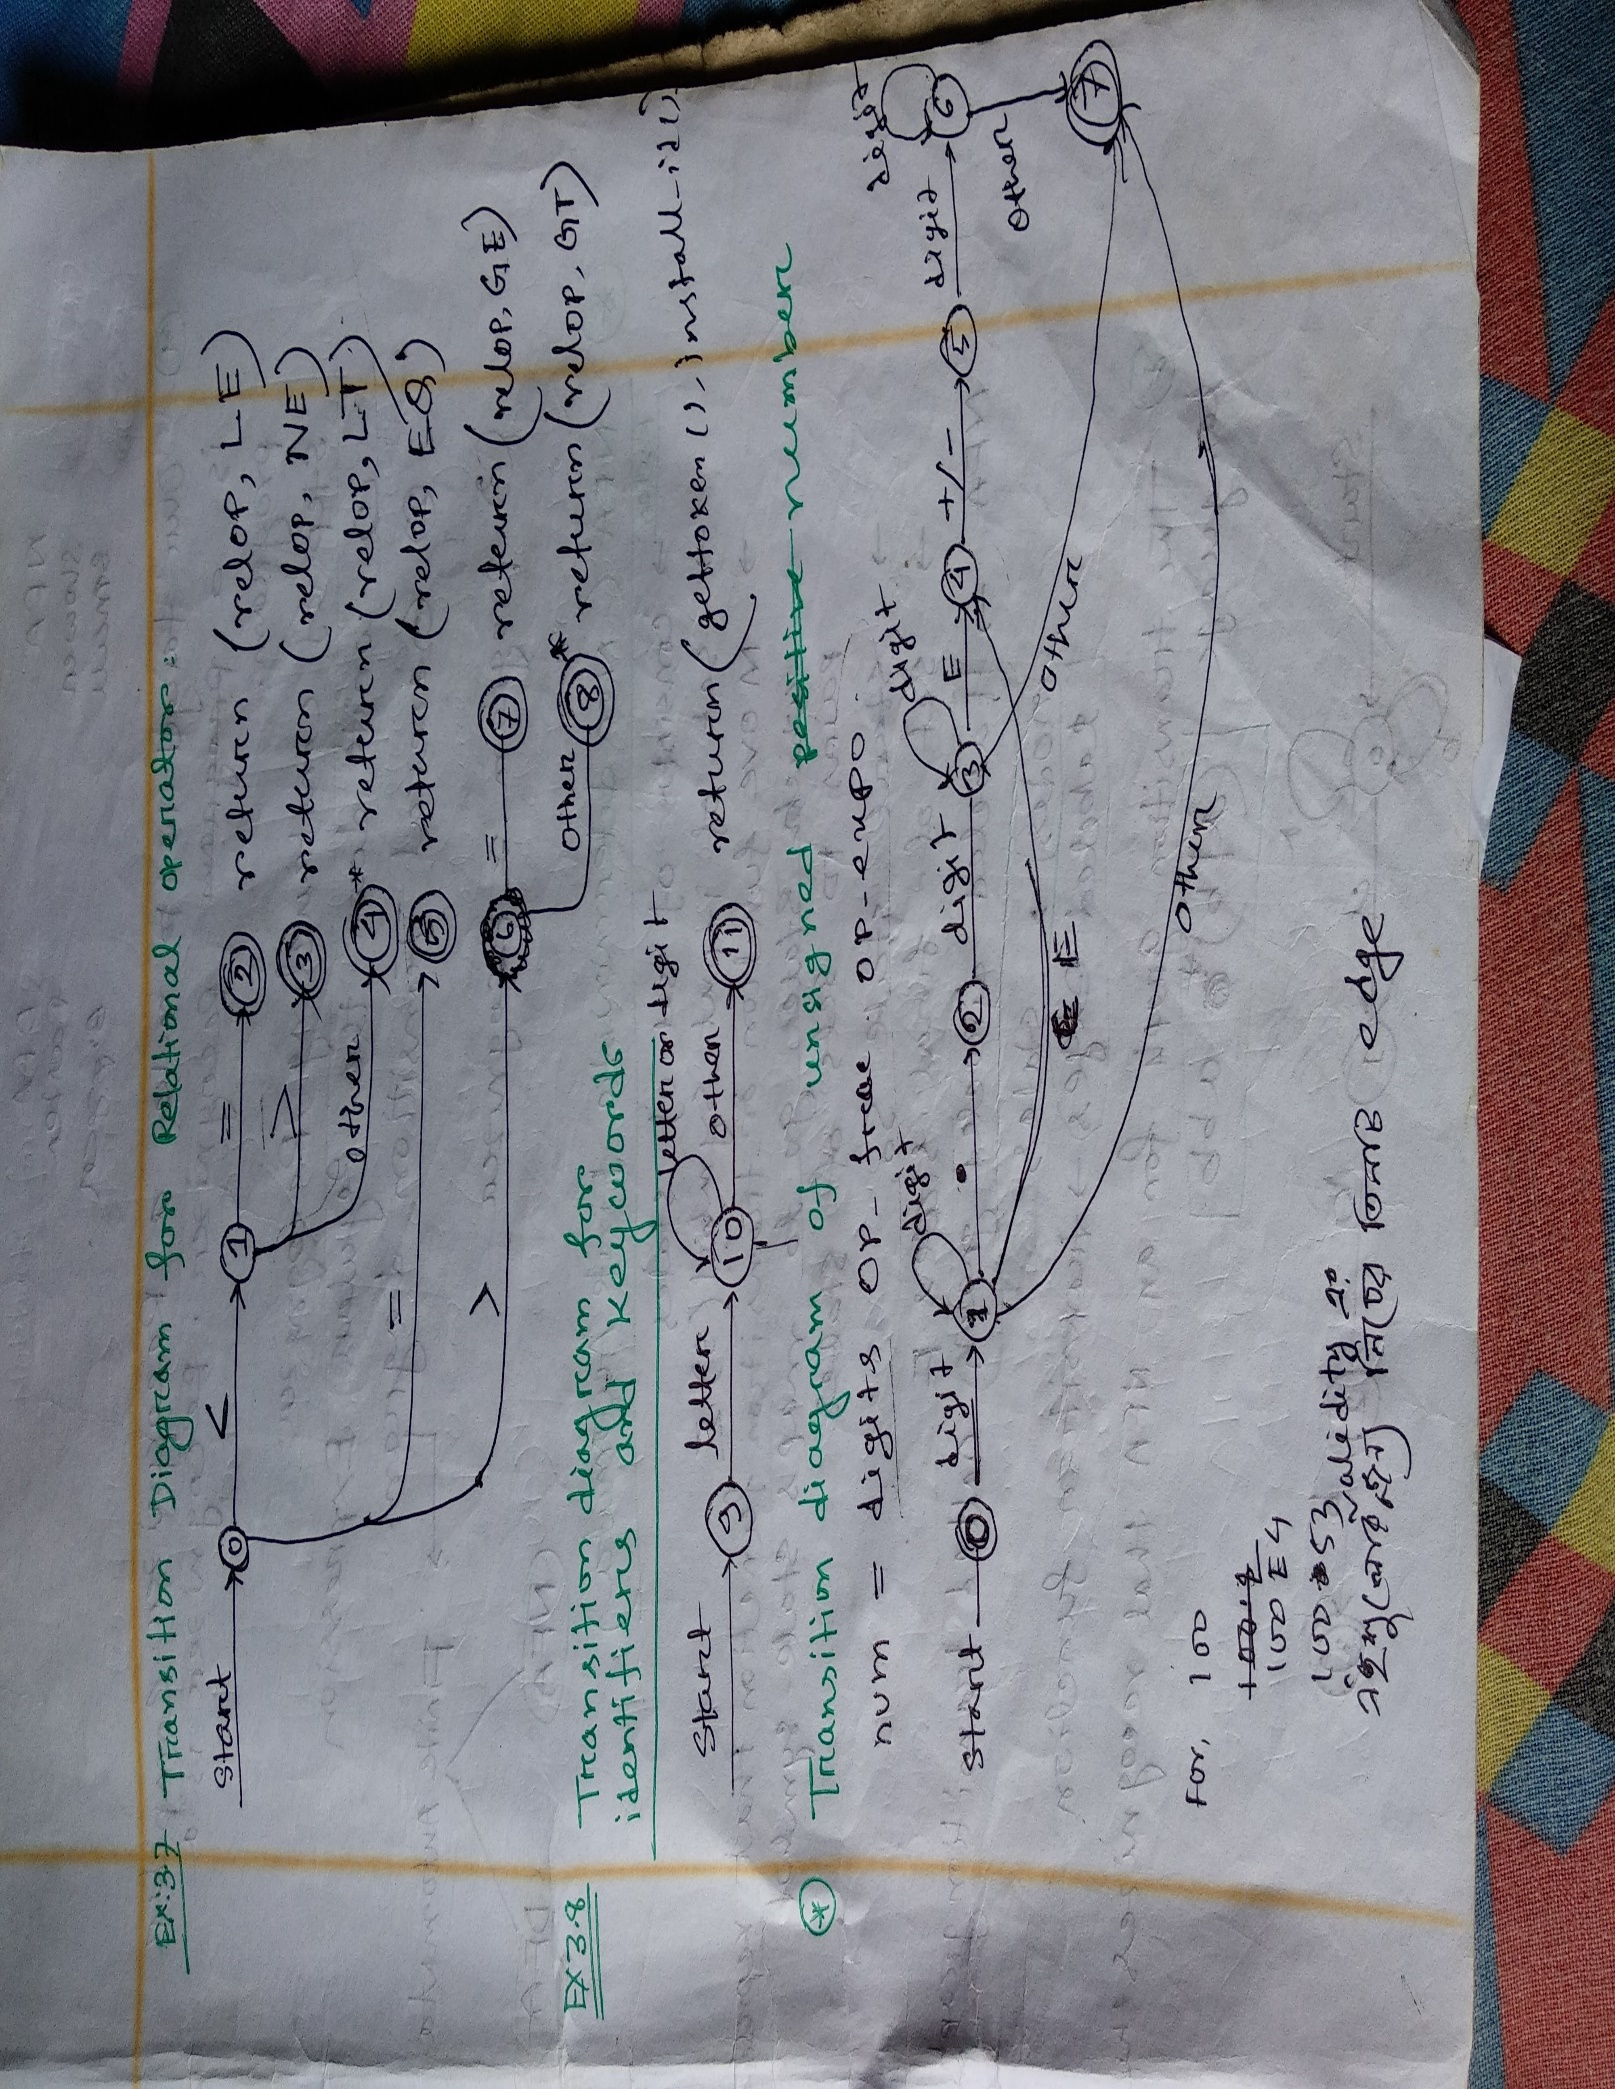 Ex:3.7 Transition Diagram for Relational operator:
start 0 < 1 = 2 return (relop, LE)
> 3 return (relop, NE)
other 4 * return (relop, LT)
= 5 return (relop, EQ)
> 6 = 7 return (relop, GE)
other 8 * return (relop, GT)
EX 3.8 Transition diagram for
identifiers and keywords
letter or digit
start 9 letter 10 other 11 return (gettoken(), install_id())
* Transition diagram of unsigned positive number
num = digits op-frac op-expo
digit digit digit
start 0 digit 1 . 2 digit 3 E 4 +/- 5 digit 6
E other other 7
other
For, 100
100 E 4
100 . 53 validity
নিয়ে edge